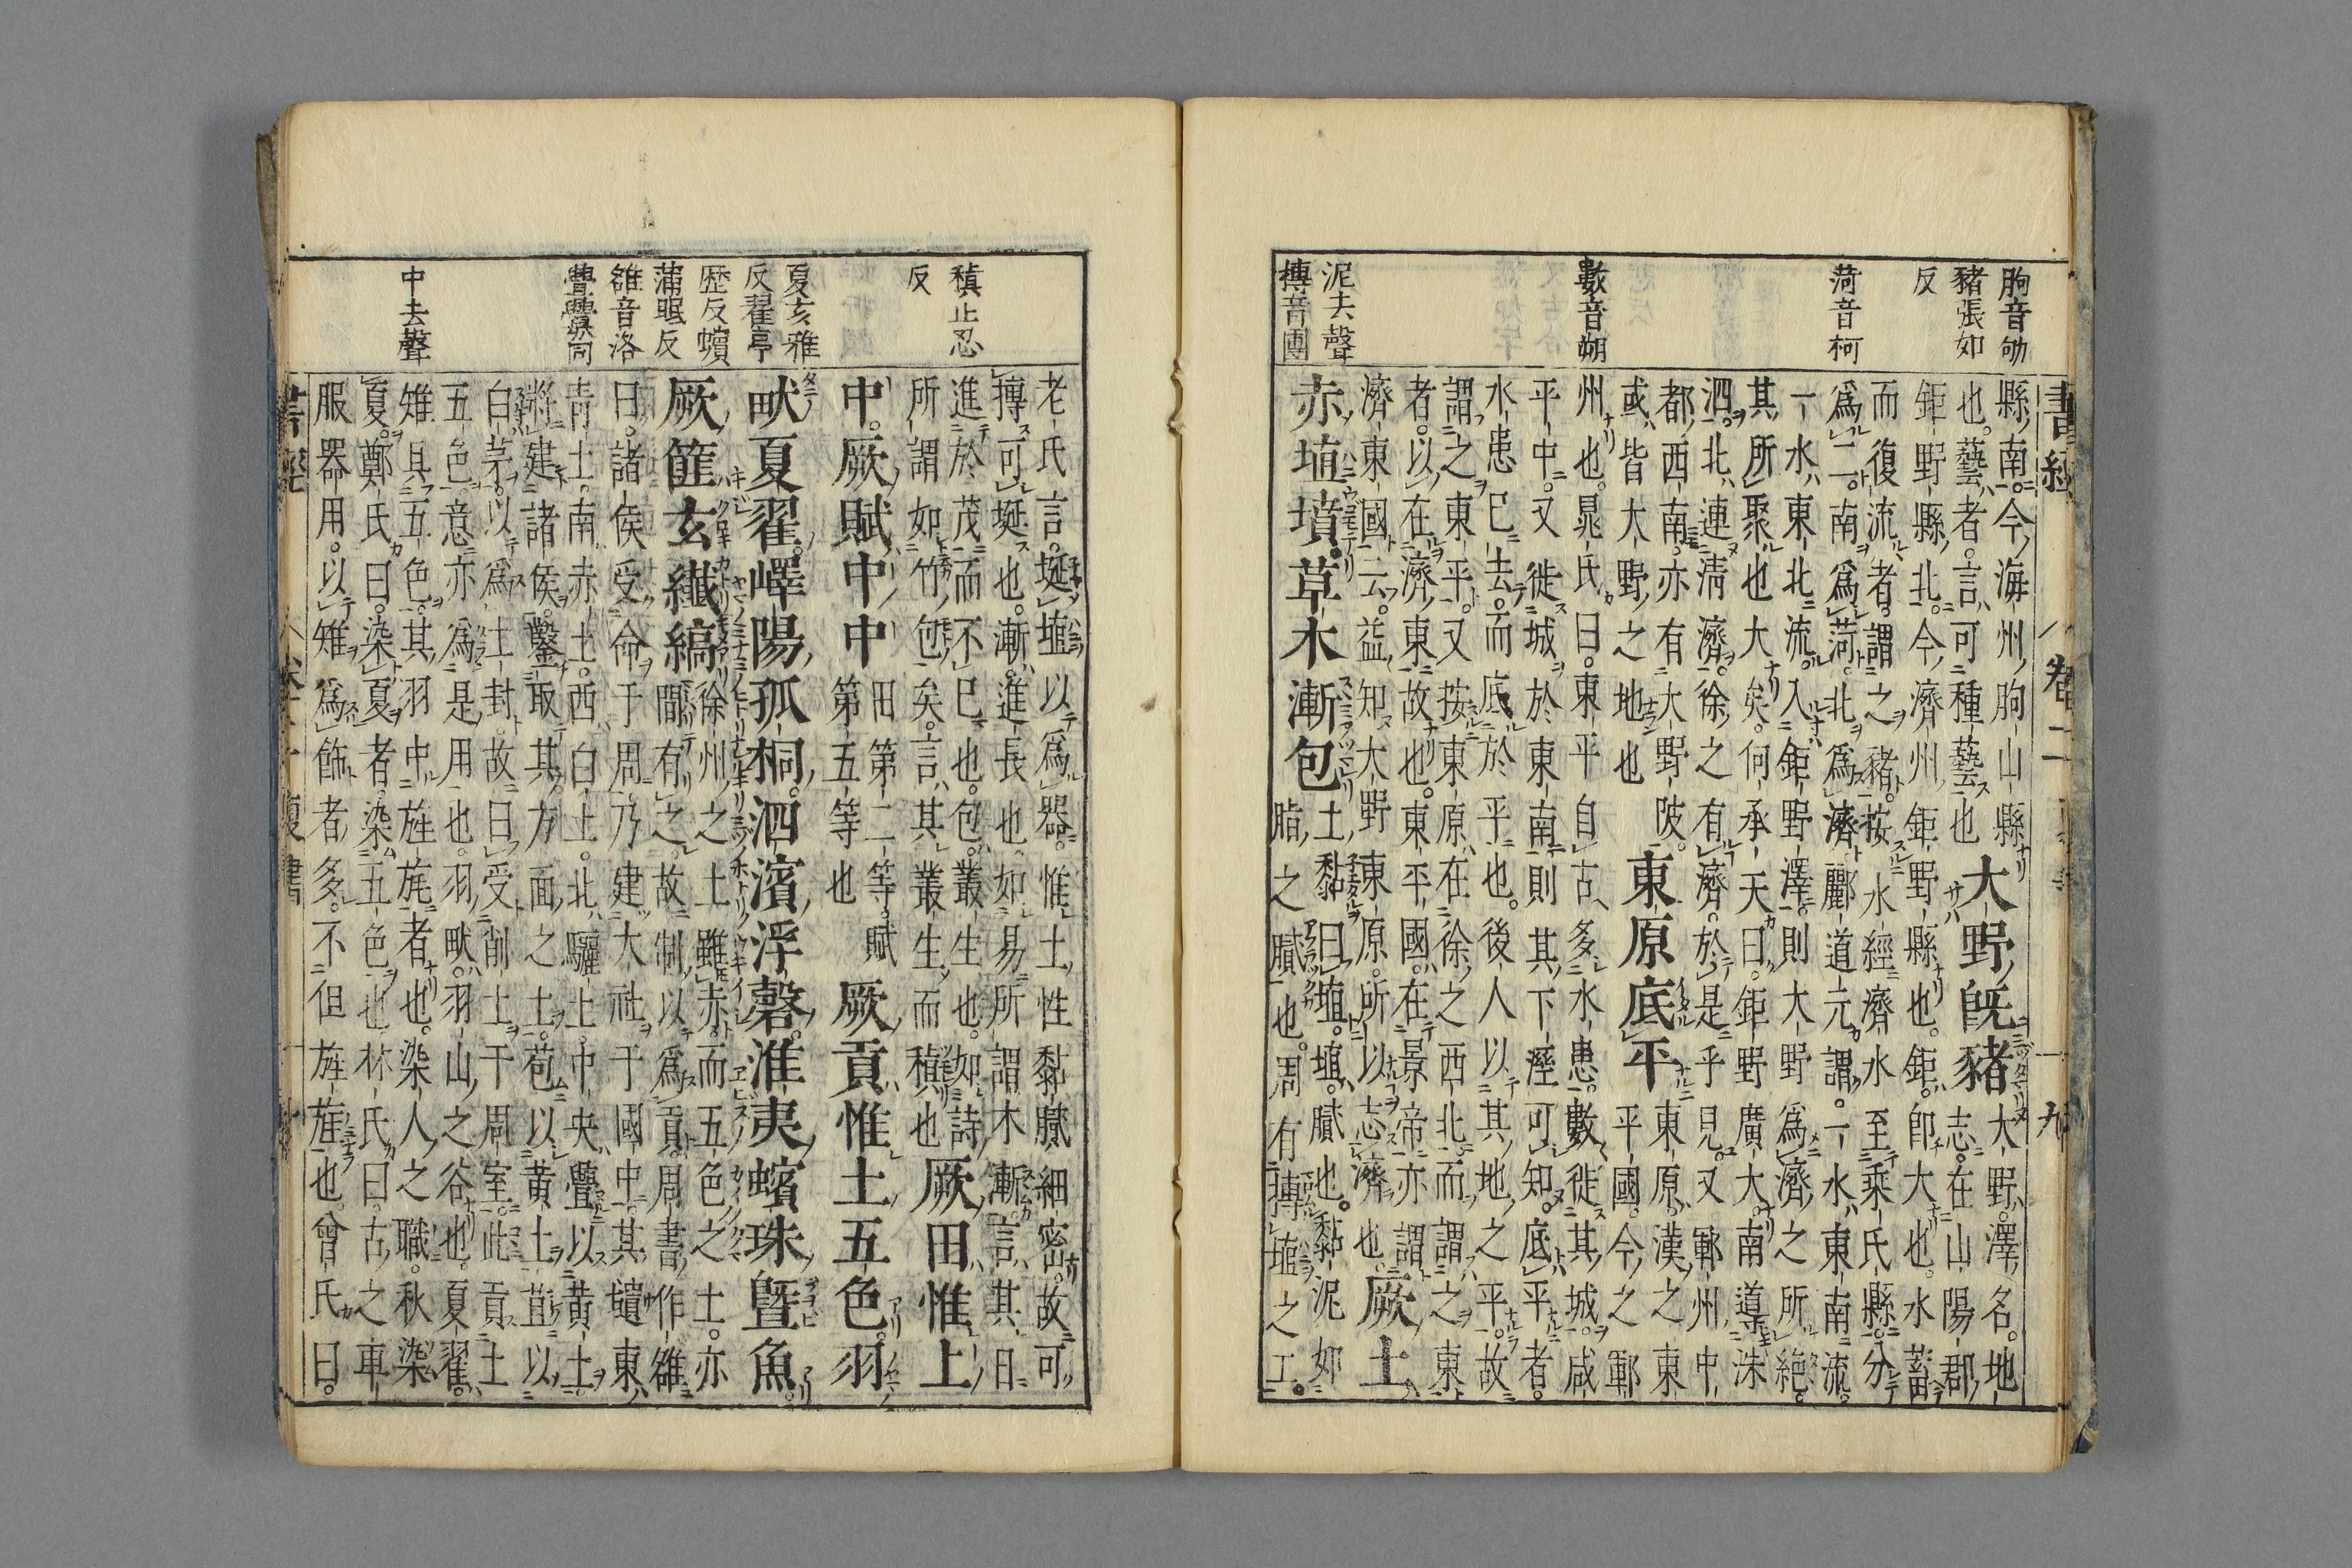 書經 卷二 九
朐音劬
豬張如
反
菏音柯
數音朔
泥去聲
摶音團
縣南。今海州朐山縣
也。藝者。言可種藝也
大野既豬
大野。澤名。地
志。在山陽郡
鉅野縣北。今濟州鉅野縣也。鉅即大也。水蓄
而復流者。謂之豬。按水經濟水至乘氏縣。分
為二。南為菏。北為濟。酈道元謂。一水東南流。
一水東北流。入鉅野澤。則大野為濟之所絕。
其所聚也大矣。何承天曰。鉅野廣大。南導洙
泗。北連清濟。徐之有濟。於是乎見。又鄆州中
都西南。亦有大野陂。
或皆大野之地也
東原底平
東原漢之東
平國。今之鄆
州也。晁氏曰。東平自古多水患。數徙其城。咸
平中。又徙城於東南。則其下溼可知。底平者。
水患已去。而底於平也。後人以其地之平。故
謂之東平。又按東原在徐之西北。而謂之東
者。以在濟東故也。東平國。在景帝亦謂
濟東國云。益知大野東原。所以志濟也。
厥土
赤埴墳。草木漸包
土黏曰埴。埴膩也。黏泥如
脂之膩也。周有摶埴之工。
稹止忍
反
夏亥雅
反翟亭
歷反蠙
蒲眠反
雒音洛
舋釁同
中去聲
老氏言。埏埴以為器。惟土性黏膩細密。故可
摶可埏也。漸進長也。如易所謂木漸。言其日
進於茂而不已也。包叢生也。如詩
所謂如竹包矣。言其叢生而稹也
厥田惟上
中。厥賦中中
田第二等。賦
第五等也
厥貢惟土五色。羽
畎夏翟。嶧陽孤桐。泗濱浮磬。淮夷蠙珠暨魚。
厥篚玄纖縞
徐州之土雖赤。而五色之土。亦
間有之。故制以為貢。周書作雒
曰。諸侯受命于周。乃建大社于國中。其壝東
青土。南赤土。西白土。北驪土。中央舋以黃土。
將建諸侯。鑿取其方面之土。苞以黃土。苴以
白茅。以為土封。故曰。受削土于周室。此貢土
五色。意亦為是用也。羽畎。羽山之谷也。夏翟。
雉具五色。其羽中旌旄者也。染人之職。秋染
夏。鄭氏曰。染夏者。染五色也。林氏曰。古之車
服器用。以雉為飾者多。不但旌旄也。曾氏曰。